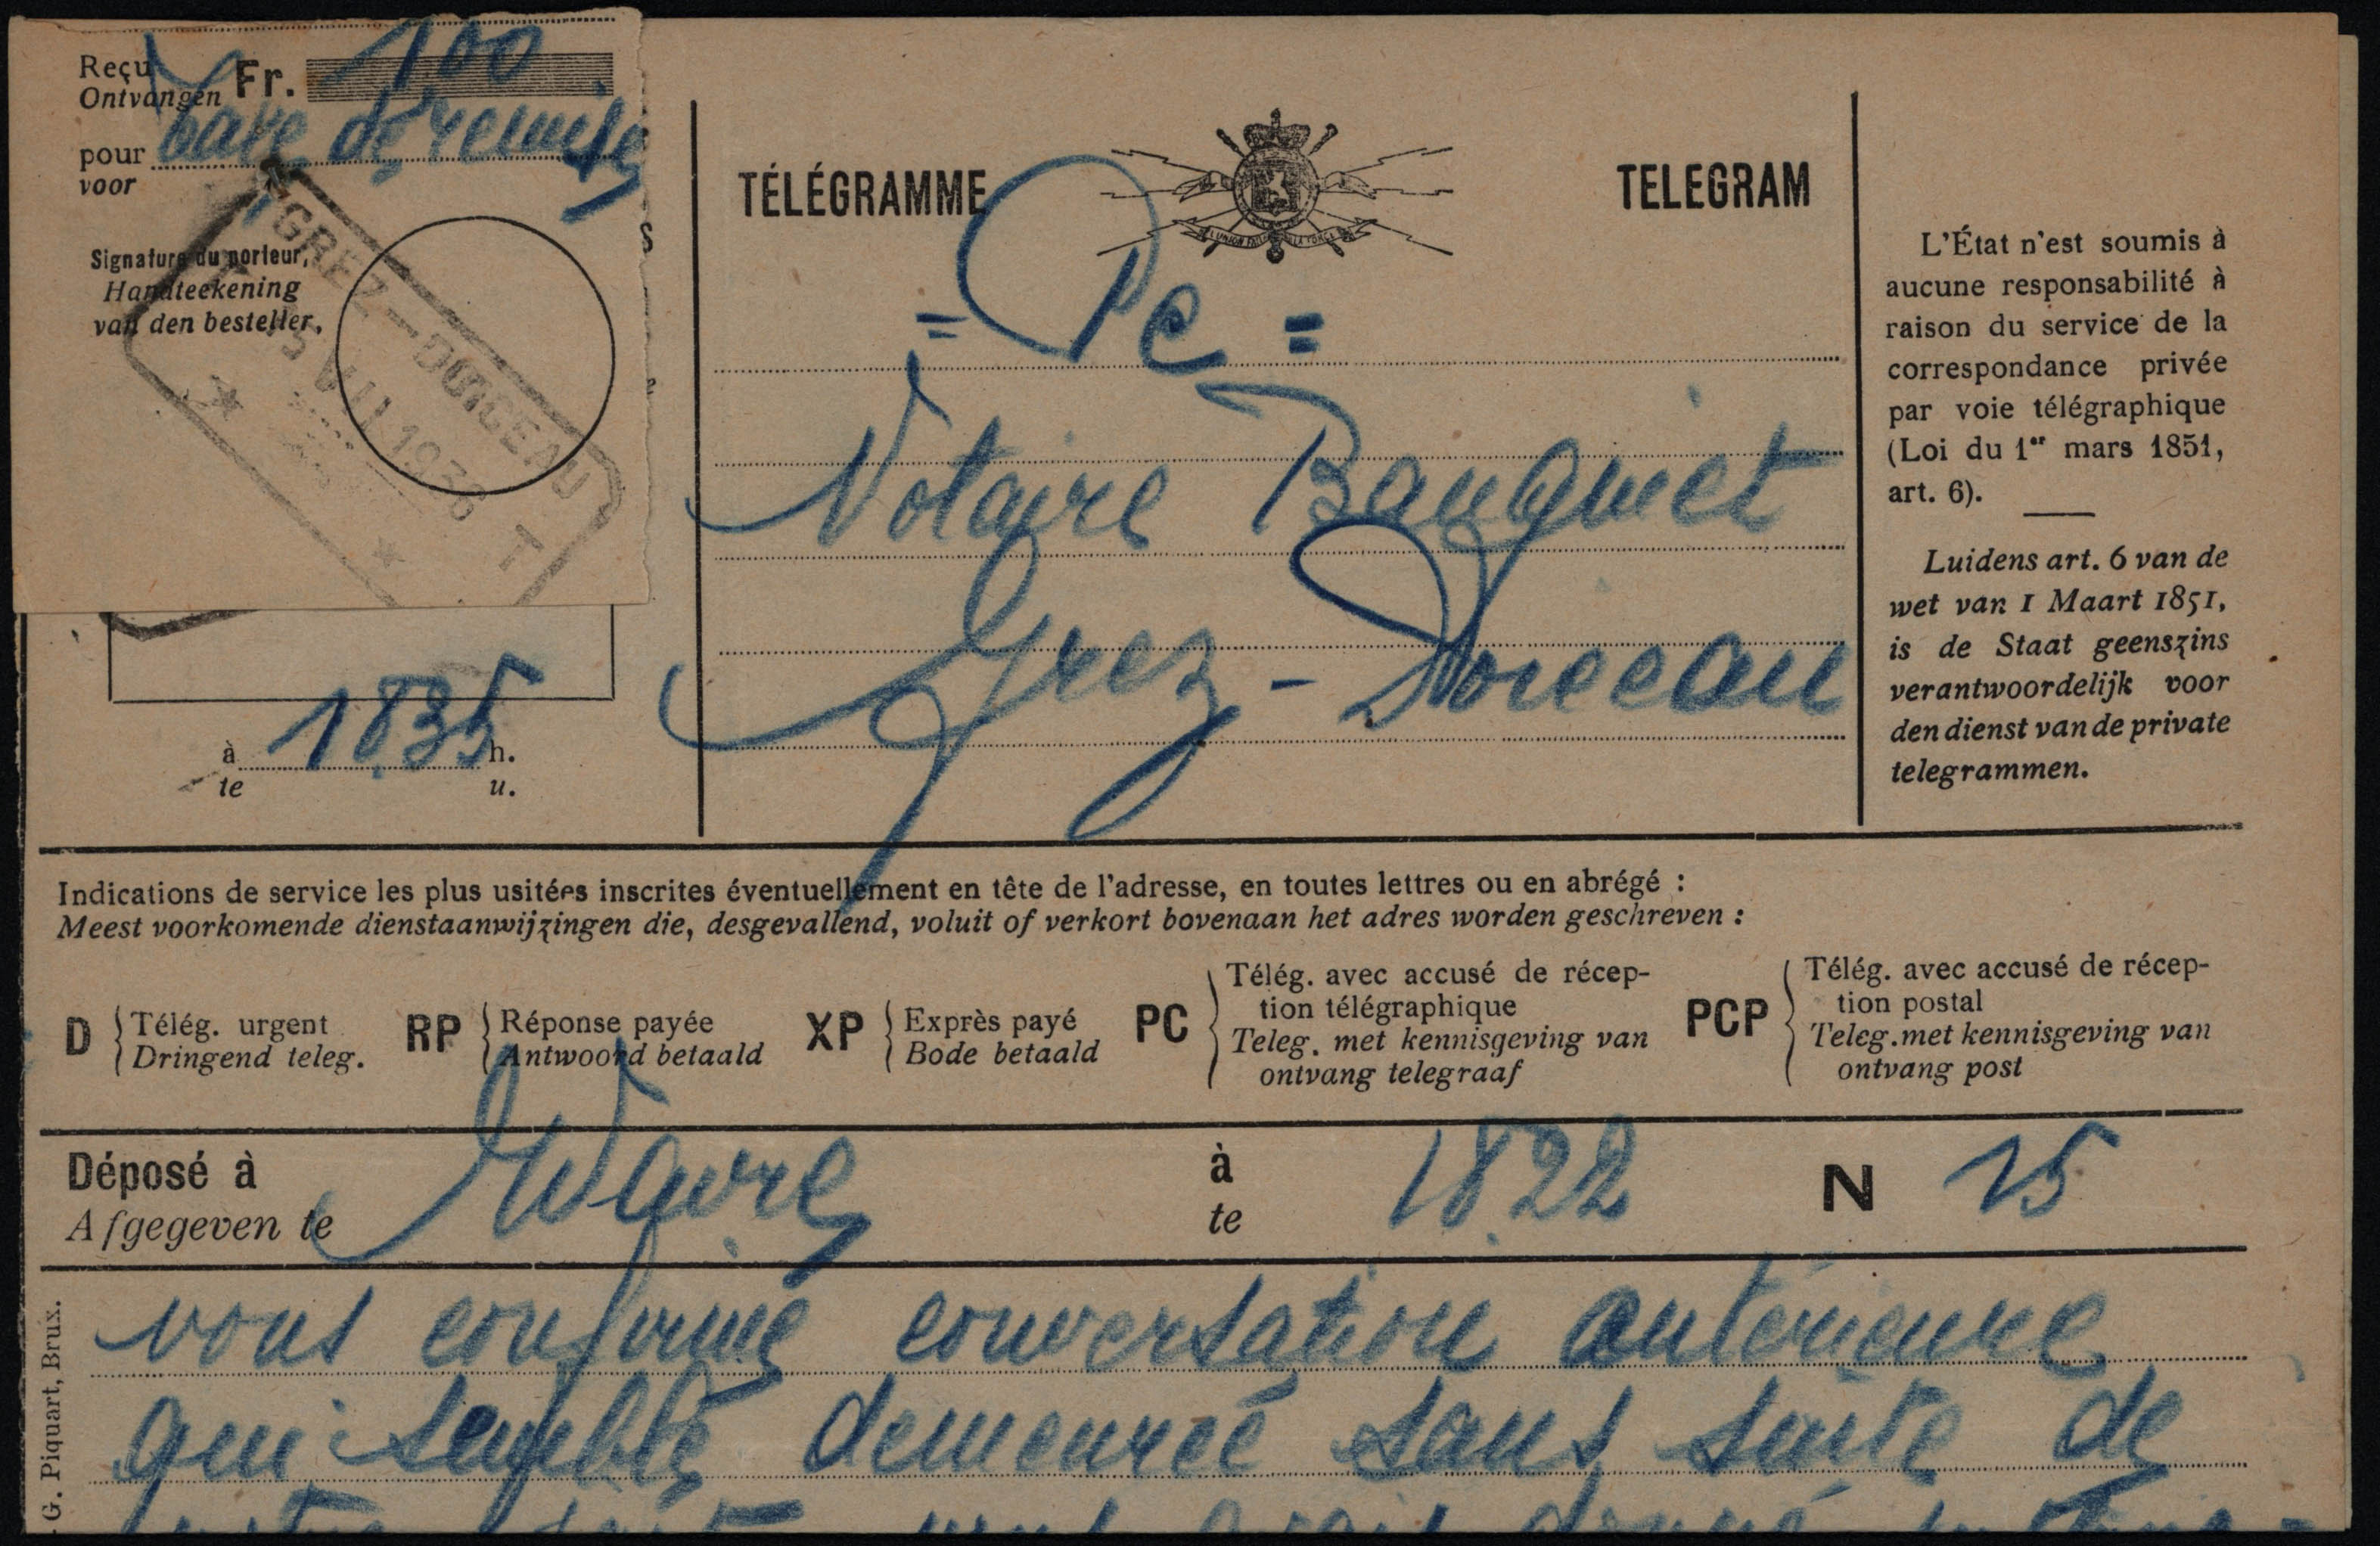 Reçu
Ontvangen
Fr. 100
pour taxe de remise
voor
Signature du porteur,
Handteekening
van den besteller,
GREZ—DOICEAU
15 VII 1938
T
à 1835 h.
te u.
TÉLÉGRAMME
TELEGRAM
= Pc =
Notaire Bauquiet
Grez - Doiceau
L'État n'est soumis à
aucune responsabilité à
raison du service de la
correspondance privée
par voie télégraphique
(Loi du 1er mars 1851,
art. 6).
Luidens art. 6 van de
wet van 1 Maart 1851,
is de Staat geenszins
verantwoordelijk voor
den dienst van de private
telegrammen.
Indications de service les plus usitées inscrites éventuellement en tête de l'adresse, en toutes lettres ou en abrégé :
Meest voorkomende dienstaanwijzingen die, desgevallend, voluit of verkort bovenaan het adres worden geschreven :
D Télég. urgent
Dringend teleg.
RP Réponse payée
Antwoord betaald
XP Exprès payé
Bode betaald
PC Télég. avec accusé de récep-
tion télégraphique
Teleg. met kennisgeving van
ontvang telegraaf
PCP Télég. avec accusé de récep-
tion postal
Teleg. met kennisgeving van
ontvang post
Déposé à Wavre à 1822 N 15
Afgegeven te te
vous confirme conversation antérieure
qui semble demeurée sans suite de
vous avais donné
G. Piquart, Brux.